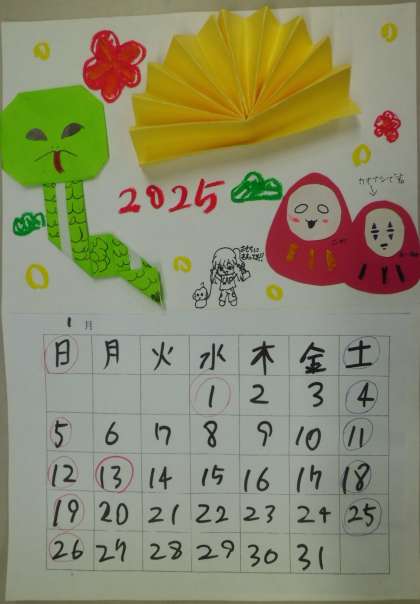 2025
カオナシです。
1月
日 月 火 水 木 金 土
1 2 3 4
5 6 7 8 9 10 11
12 13 14 15 16 17 18
19 20 21 22 23 24 25
26 27 28 29 30 31